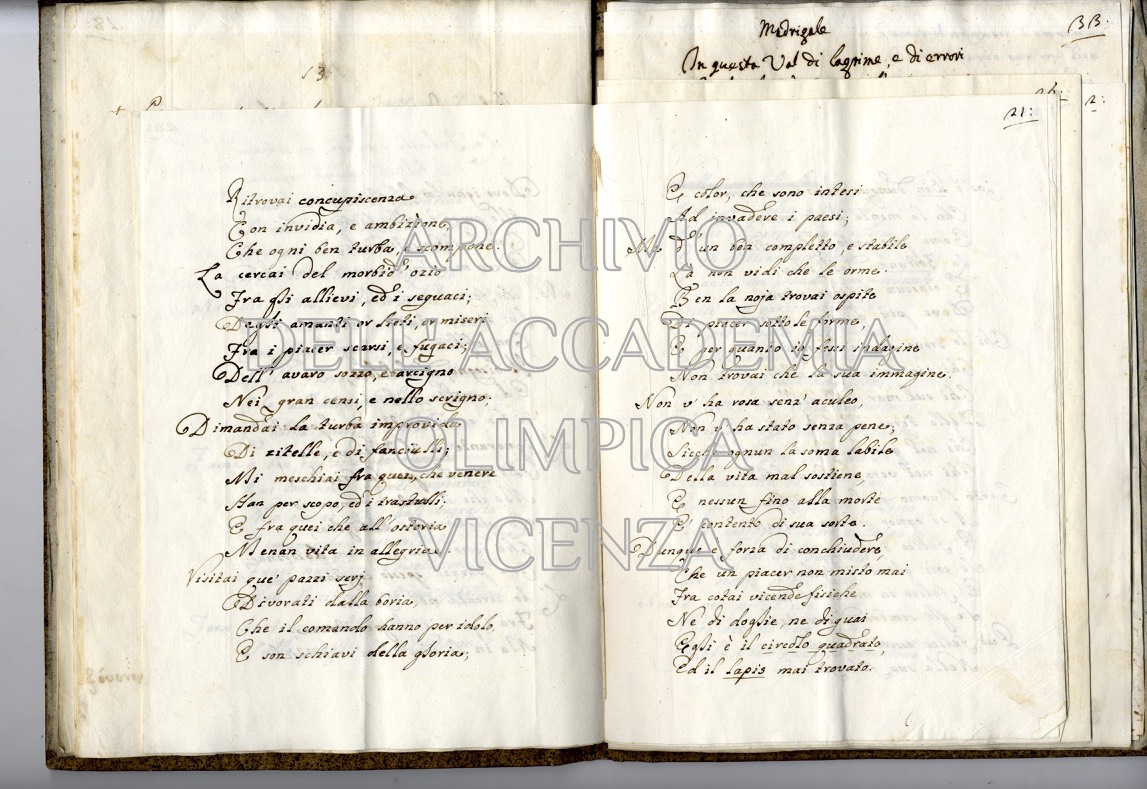 13
Ritrovai concupiscenza
Con invidia, e ambizione,
Che ogni ben turba, e scompone.
La cercai del morbid' ozio
Fra gli allievi, ed i seguaci;
Dagli amanti or lieti, or miseri
Fra i piacer scarsi, e fugaci;
Dell' avaro sozzo, e arcigno
Nei gran censi, e nello scrigno;
Dimandai la turba improvida
Di zitelle, e di fanciulli;
Mi meschiai fra quei, che venere
Han per scopo, ed i trastulli;
E fra quei che all' osteria
Menan vita in allegria.
Visitai que' pazzi serj
Divorati dalla boria,
Che il comando hanno per idolo,
E son schiavi della gloria;
Madrigale
BB.
In questa Val di lagrime, e di errori
2:
21:
E color, che sono intesi
Ad invadere i paesi;
Ma d' un ben completto, e stabile
La non vidi che le orme.
Ben la noja trovai ospite
Di piacer sotto le forme,
E per quanto io fessi indagine
Non trovai che la sua immagine.
Non v' ha rosa senz' aculeo,
Non v' ha stato senza pene;
Sicchè ognun la soma labile
Della vita mal sostiene,
E nessun fino alla morte
E' contento di sua sorte.
Dunque è forza di conchiudere,
Che un piacer non misto mai
Fra cotai vicende fisiche
Ne di doglie, ne di guai
Egli è il circolo quadrato,
Ed il lapis mai trovato.
ARCHIVIO
DELL'ACCADEMIA
OLIMPICA
VICENZA